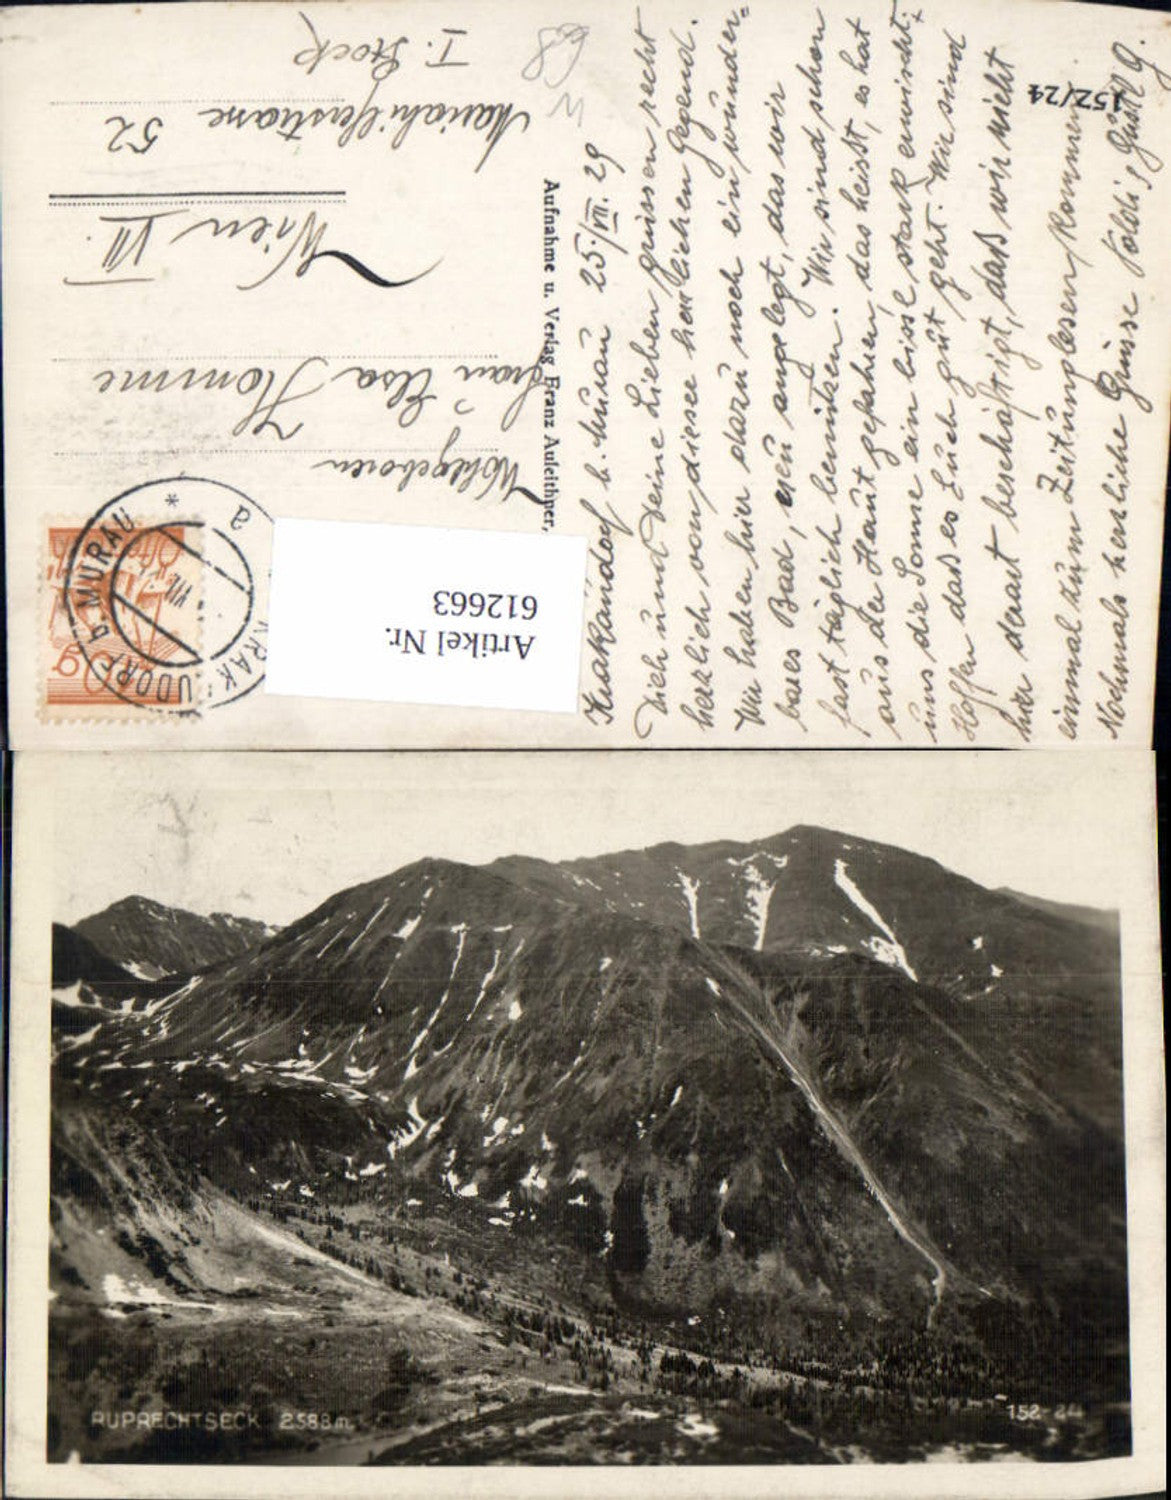 Krakaudorf b. Murau 25./VII. 29
Dich und Deine Lieben grüssen recht
herzlich von dieser herrlichen Gegend.
Wir haben hier dazu noch ein wunder-
bares Bad, neu angelegt, das wir
fast täglich benützen. Wir sind schon
aus der Haut gefahren, das heisst, es hat
uns die Sonne ein bissl stark erwischt.
Hoffen dass es Euch gut geht. Wir sind
hier derart beschäftigt, daß wir nicht
einmal zum Zeitunglesen kommen.
Nochmals herzliche Grüsse Poldi, Gustl
152/24
Aufnahme u. Verlag Franz Auleithner,
Wohlgeboren
Frau Elsa Homme
Wien VII.
Mariahilferstrasse
52
I. Stock
68
W
KRAKAUDORF b. MURAU
* a
VII
Österreich
Artikel Nr.
612663
RUPRECHTSECK 2588m.
152 24